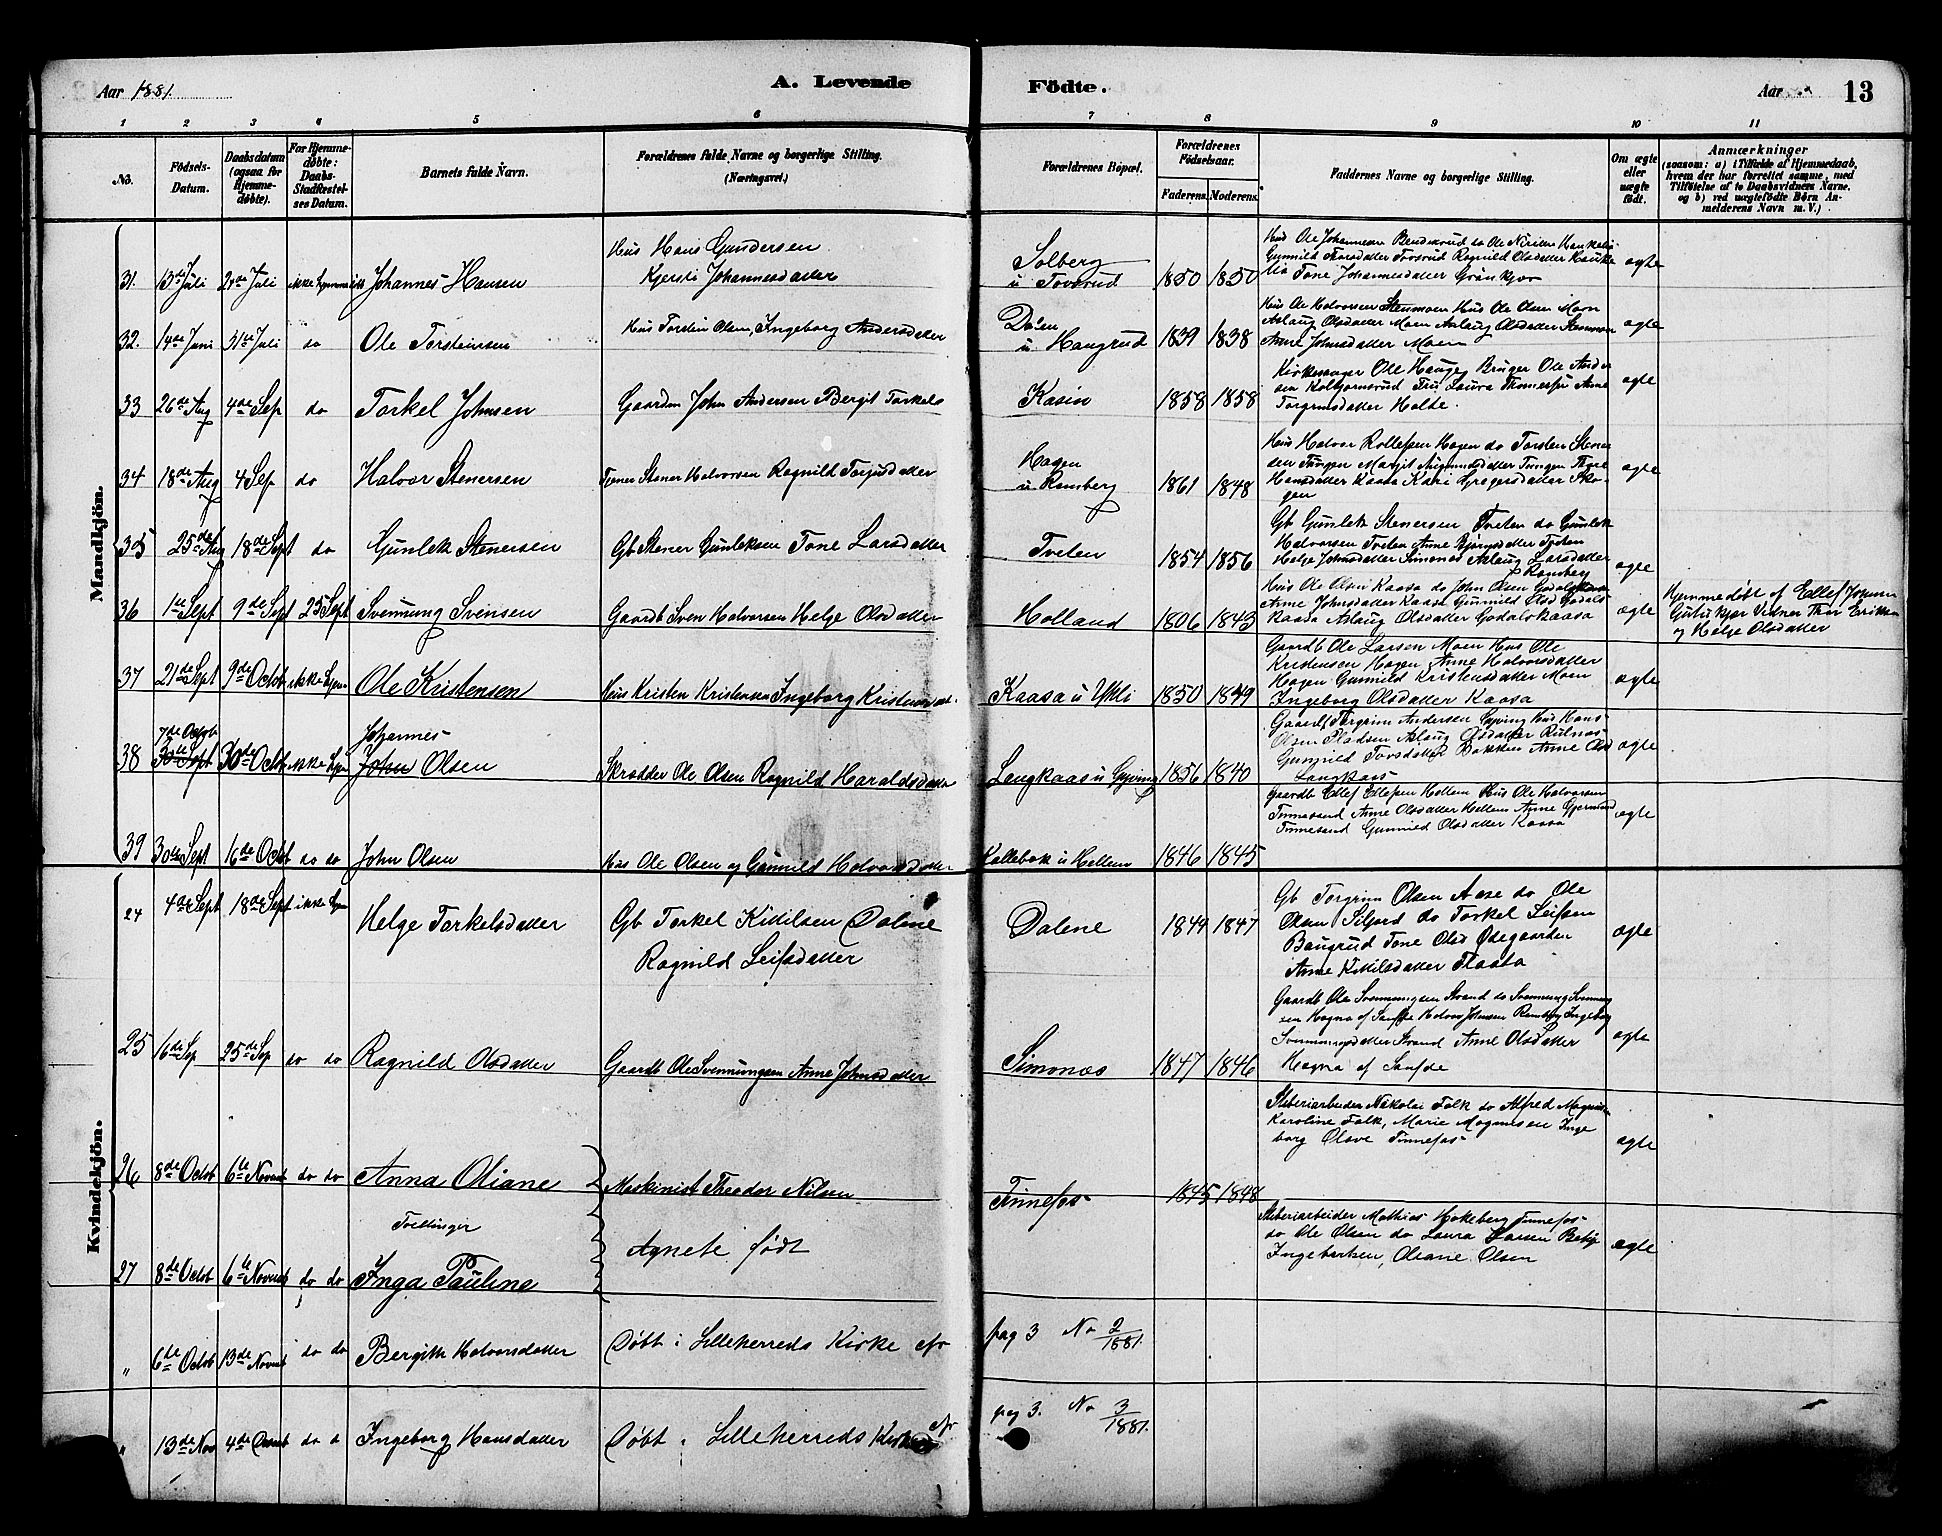 Aar 1881.
A. Levende
Födte.
Aar
13
1 2 3 4 5 6 7 8 9 10 11
No.
Födsels-Datum.
Daabsdatum (ogsaa for Hjemme-døbte).
For Hjemme-døbte: Daabs-Stadfæstel-ses Datum.
Barnets fulde Navn.
Forældrenes fulde Navne og borgerlige Stilling. (Næringsvei.)
Forældrenes Bopæl.
Forældrenes Födselsaar.
Faderens. Moderens.
Faddernes Navne og borgerlige Stilling.
Om ægte eller uægte födt.
Anmærkninger (saasom: a) i Tilfælde af Hjemmedaab, hvem der har forrettet samme, med Tilföielse af to Daabsvidners Navne, og b) ved uægtefödte Børn An-melderens Navn m. V.)
Mandkjön.
31. 13de Juli 24de Juli Johannes Hansen
Hus Hans Gundersen
Kjersti Johannesdatter
Solberg
u Tovsrud
1850 1850
Hus Ole Johannesen
Gunnild Ragnild Olsdatter
Tone Johannesdatter
ægte
32. 14de Juni 31te Juli do Ole Torsteinsen
Hus Torstein Olsen, Ingeborg Andersdatter
u Haugrud
1839 1838
Hus Ole Halvorsen Stenmoen Hus Ole Olsen Moen
Aslaug Olsdatter Moen Aslaug Olsdatter
Anne Johnsdatter Moen
ægte
33 26de Aug 4de Sep do Torkel Johnsen
Gaardm John Andersen Bergit Torkels
Kasin
1858 1858
Kirkesanger Ole Hauge, Bruger Ole Ander
sen Kolbjørnsrud Fru Laura Anne
Torgrimsdatter Holte.
ægte
34 18de Aug 4 Sep do Halvor Stenersen
Tjener Stener Halvorsen Ragnild Torjusdatter
Hagen
u Ramberg
1861 1848
Hus Halvor Rollefsen Hagen do Torsten Stener
sen Tungen Margit Tungen
Hansdatter Kaasa Kari Gregersdatter Sko-
gen
ægte
35 25de Aug 18de Sept do Gunlek Stenersen
Gb Stener Gunleksen Tone Larsdatter
Tveten
1854 1856
Gb Gunlek Stenersen Tveten do Gunlek
Halvorsen Tveten Anne Bjørnsdatter Tveten
Helje Johnsdatter Simonæs Aslaug Larsdatter
Ramberg
ægte
36 1te Sept 9de Sept 25 Sept Svennung Svensen
Gaardb Sven Halvorsen Helge Olsdatter
Holland
1806 1843
Hus Ole Olsen Kaasa do John Olsen
Anne Johnsdatter Kaasa Gunnild
Kaasa Aslaug Olsdatter Godalskaasa
ægte
Hjemmedøbt af Ellef Johnsen
Vidner Thor Eriksen
og Helge Olsdatter
37 21de Sept 9de Octob ikke hjem Ole Kristensen
Hus Kristen Kristensen Ingeborg Kristensdat.
Kaasa u Ytli
1850 1849
Gaardb Ole Larsen Moen Hus Ole
Kristensen Hagen Anne Halvorsdatter
Hagen Gunnild Kristensdatter Moen
Ingeborg Olsdatter Kaasa
ægte
38 7de Octob 30te Sept 30te Octob ikke hjem Johannes John Olsen
Skrædder Ole Olsen Ragnild Haraldsdatter
Lengkaas u Gyving
1856 1840
Gaardb Torgrim Andersen Gyving Hus Hans
Olsen Pladsen Aslaug Olsdatter
Gunnild Torsdatter Bakken Anne Olsd
Langkaas
ægte
39 30te Sept 16de Octob do do John Olsen
Hus Ole Olsen og Gunnild Halvorsdatter
Kallebæk u Hellem
1846 1845
Gaardb Ellef Ellefsen Hellem Hus Ole Halvorsen
Tinnesand Anne Olsdatter Hellem Anne
Tinnesand Gunnild Olsdatter Kaasa
ægte
Kvindekjön.
24 4de Sept 18de Sept ikke hjem Helge Torkelsdatter
Gb Torkel Kittilsen Dalene
Ragnild Leifsdatter
Dalene
1844 1847
Gb Torgrim Olsen Aase do Ole
Olsen Siljord do Torkel Leifsen
Baugrud Tone Olsd Ødegaarden
Anne Kittilsdatter Flaata
ægte
25 16de Sep 25de Sep do do Ragnild Olsdatter
Gaardb Ole Svennungsen Anne Johnsdatter
Simonæs
1847 1846
Gaardb Ole Svennungsen Strand do Svennung Svennung
sen Hagna af Saufde Halvor Johnsen Ramberg Ingeborg
Svennungsdatter Strand Anne Olsdatter
Hagna af Saufde
ægte
26 8de Octob 6te Novemb do do Anna Oliane
Maskinist Theodor Nilsen
Tinnefos
1845 1848
Sliberiarbeider Nikolai Falk do Alfred Magnusen
Karoline Falk, Marie Magnussen Inge
borg Olsve Tinnefos
ægte
Tvillinger
27 8de Octob 6te Novemb do do Inga Pauline
Agnete født
Sliberiarbeider Mathias Hakeberg Tinnefos
do Ole Olsen do Laura Larsen
Ingebretsen, Oliane Olsen
ægte
„ 6de Octob 13de Novemb do do Bergith Halvorsdatter
Døbt i Lilleherreds Kirke cfr
pag 3 No 2/1881.
„ 13de Nov 4de Decmb do d Ingeborg Hansdatter
Døbt i Lilleherreds Kirke cfr
pag 3. No 3/1881.